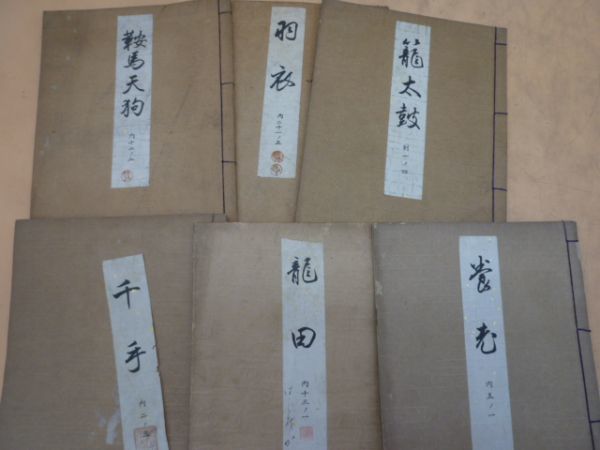 鞍馬天狗
内十二ノ二
羽衣
内二十一ノ三
籠太鼓
別一ノ四
千手
内二ノ三
龍田
内十三ノ一
養老
内五ノ一